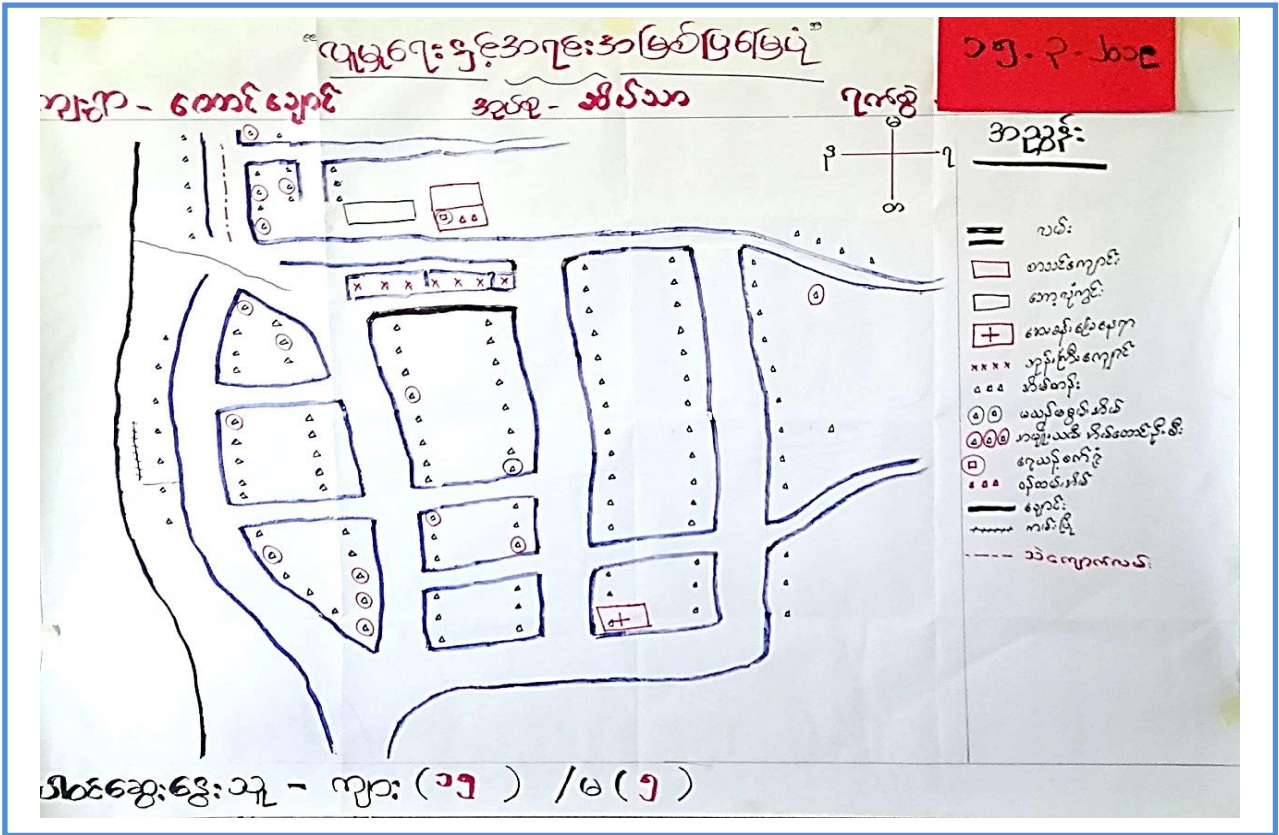 "လူမှုရေးနှင့်အရင်းအမြစ်ပြမြေပုံ"
၁၅.၃.၂၀၁၉
ကျေးရွာ - တောင်ချောင်
အုပ်စု - အိပ်သာ
ရက်စွဲ -
မ
န
ရ
တ
အညွှန်း
လမ်း
စာသင်ကျောင်း
ဘောလုံးကွင်း
ဆေးခန်းမြေနေရာ
ဘုန်းကြီးကျောင်း
အိမ်တန်း
မသန်မစွမ်းအိမ်
အမျိုးသမီးအိမ်ထောင်ဦးစီး
ရေသန့်စက်ရုံ
ဝန်ထမ်းအိမ်
ချောင်း
ကမ်းပြို
သဲကျောက်လမ်း
ပါဝင်ဆွေးနွေးသူ - ကျား (၁၅) / မ (၅)